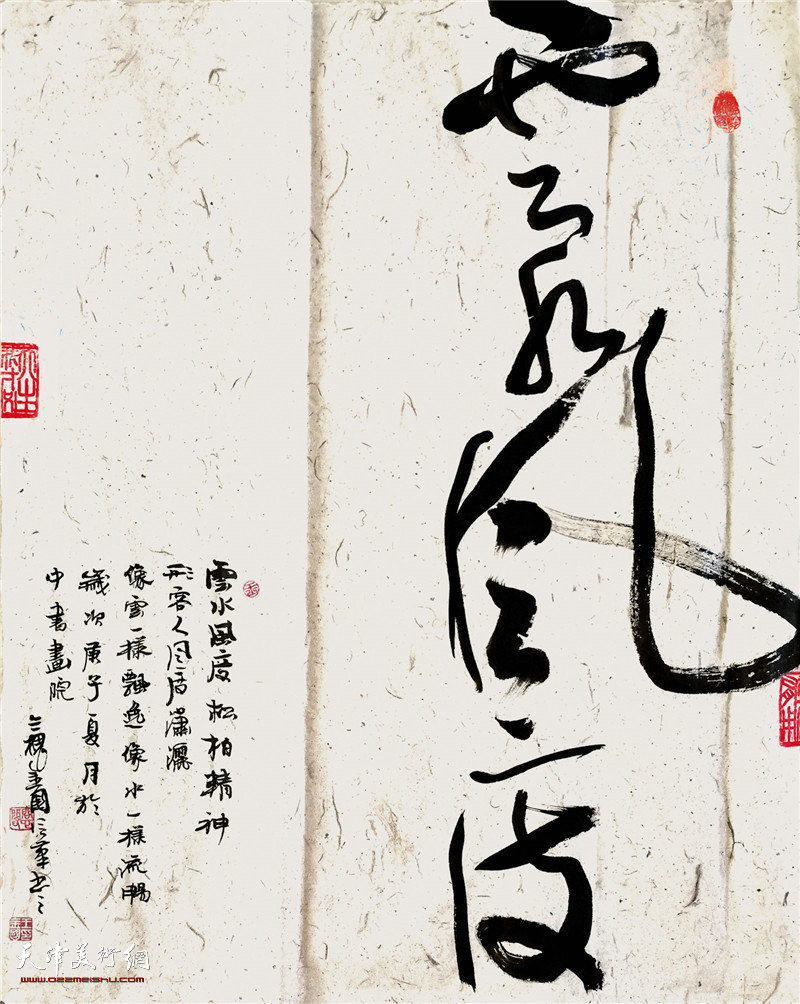 雲水風度
雲水風度 松柏精神
形容人风度瀟灑
像雲一樣飄逸像水一樣流暢
歲次庚子夏月於
中書畫院
天津美術網
www.022meishu.com